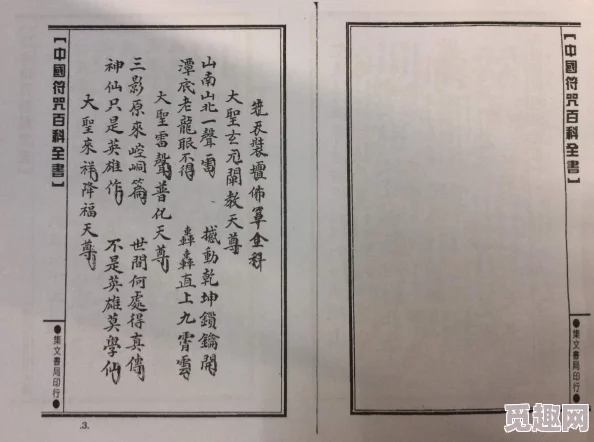 【中國符咒百科全書】
●集文書局印行●
裝壇佈罩金科
大聖玄元闡教天尊
山南山北一聲雷　撼動乾坤鎖鑰開
潭底老龍眠不得　轟轟直上九霄雲
大聖雷聲普化天尊
三影原來崆峒篇　世間何處得真傳
神仙只是英雄作　不是英雄莫學仙
大聖來祥降福天尊
【中國符咒百科全書】
●集文書局印行●
.3.
觅趣网